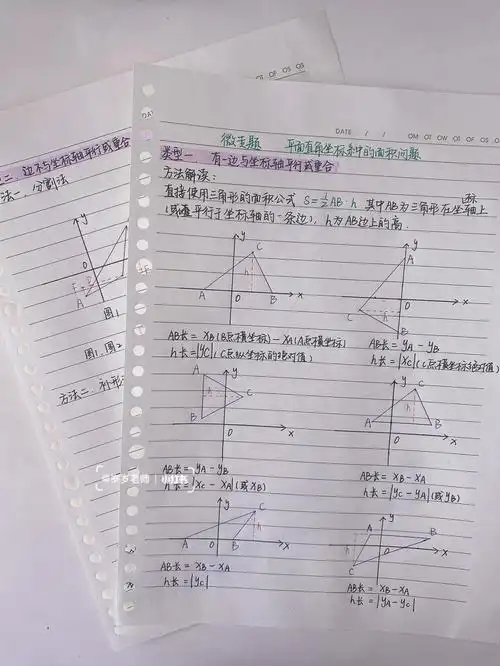 DATE / /
OM OT OW OT OF OS OS
OT OF OS OS
微专题 平面直角坐标系中的面积问题
类型一、有一边与坐标轴平行或重合
方法解读:
直接使用三角形的面积公式 S=½AB·h 其中AB为三角形在坐标轴上
(或平行于坐标轴的一条边), h为AB边上的高.
y
C
h
A
O
B
x
y
A
O
x
C
B
AB长 = xB(B点横坐标) - xA(A点横坐标)
h长 = |yC| (C点纵坐标的绝对值)
AB长 = yA - yB
h长 = |xC| (C点横坐标绝对值)
y
A
C
B
O
x
y
C
h
A
B
O
x
AB长 = yA - yB
h长 = |xC - xA| (或xB)
AB长 = xB - xA
h长 = |yC - yA| (或yB)
y
C
h
A
O
B
x
y
A
B
h
O
x
C
AB长 = xB - xA
h长 = |yC|
AB长 = xB - xA
h长 = |yA - yC|
二、边不与坐标轴平行或重合
法一、分割法
y
F
E
A
O
图1
图1、图2
方法二、补形
小红书